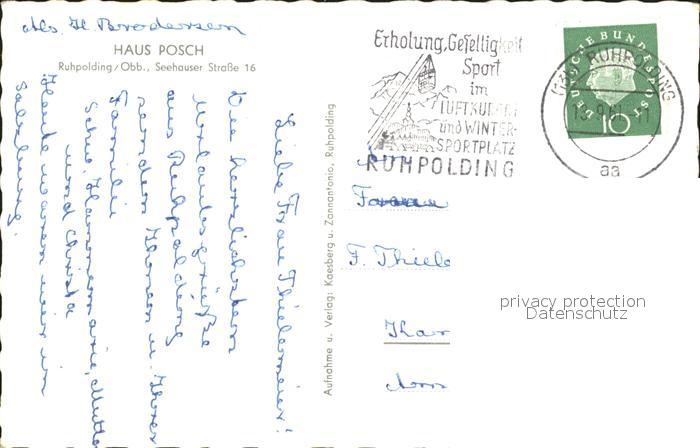 Abs. H. Brodersen
HAUS POSCH
Ruhpolding/Obb., Seehauser Straße 16
Liebe Frau Thielemeier!
Die herzlichsten
Urlaubsgrüße
aus Ruhpolding
senden Ihnen u. Ihrer
Familie
Schw. Hannemarie, Mutti
und Christa
Heute waren wir in
Salzburg.
Aufnahme u. Verlag: Kaesberg u. Zannantonio, Ruhpolding
Erholung, Geselligkeit
Sport
im
LUFTKURORT
und WINTER-
SPORTPLATZ
RUHPOLDING
DEUTSCHE BUNDESPOST
10
RUHPOLDING
aa
F. Thiele
privacy protection
Datenschutz